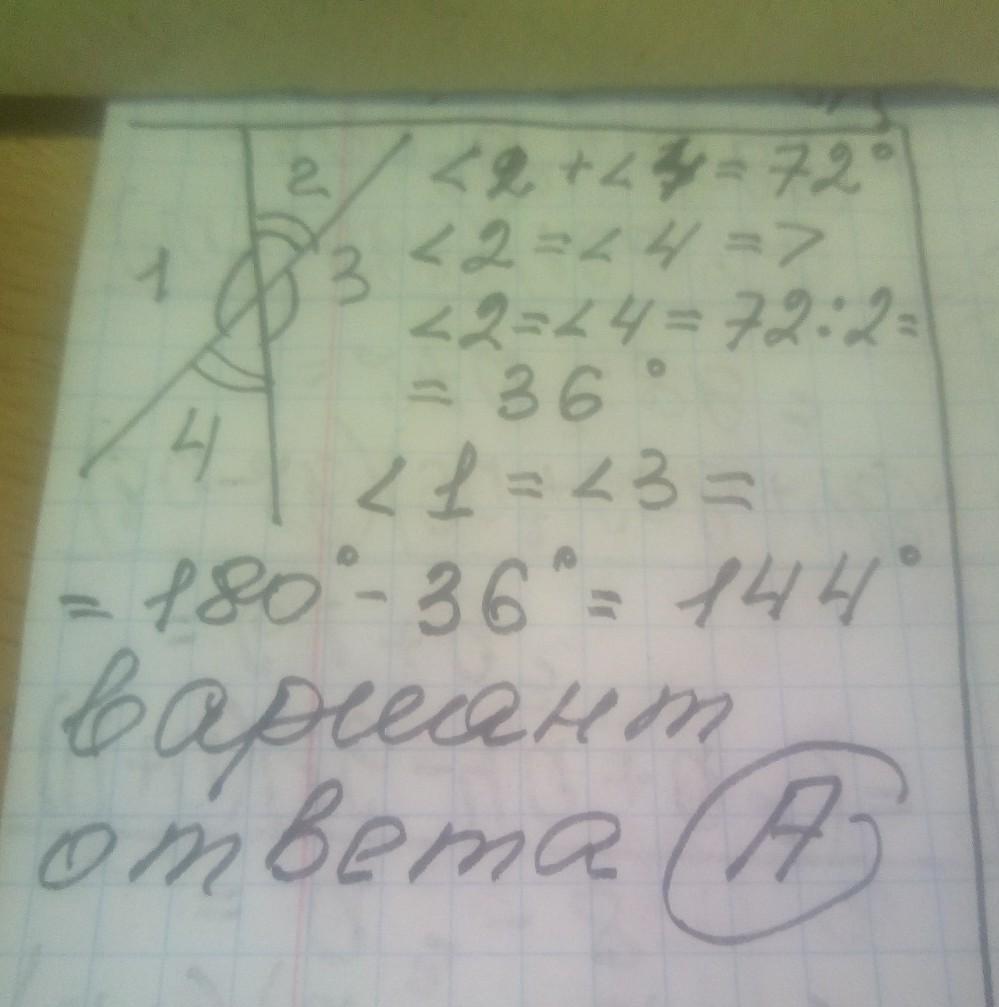 2
1
3
4
<2 + <4 = 72°
<2 = < 4 = >
<2 = < 4 = 72 : 2 =
= 36°
<1 = <3 =
= 180° - 36° = 144°
вариант
ответа А